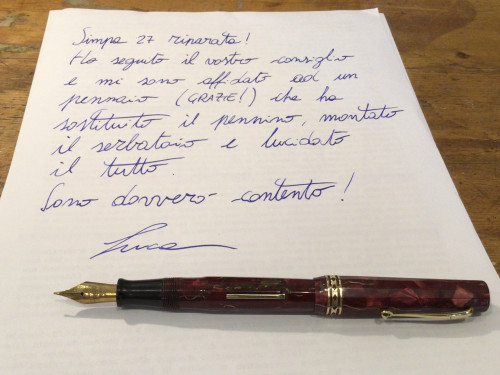 Simpa 27 riparata!
Ho seguito il vostro consiglio
e mi sono affidato ad un
pennaio (GRAZIE!) che ha
sostituito il pennino, montato
il serbatoio e lucidato
il tutto.
Sono davvero contento!
Luca